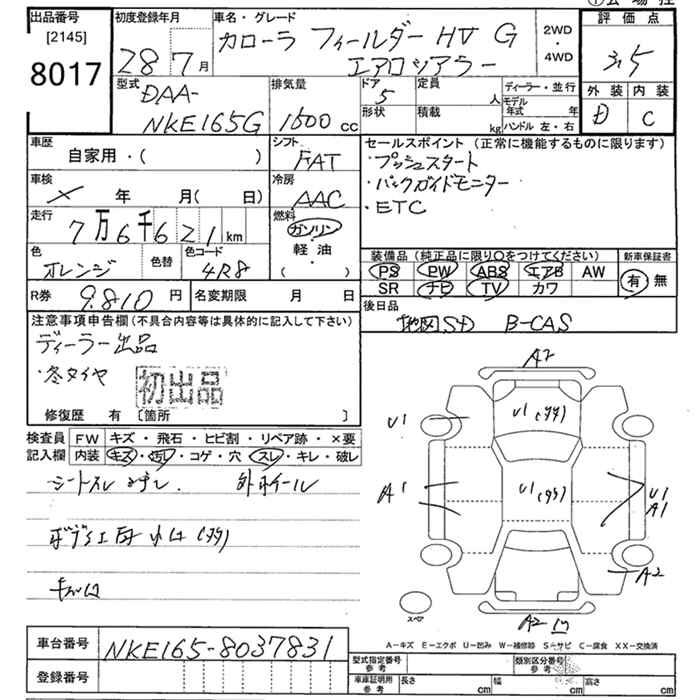 出品番号
[2145]
8017
初度登録年月
28 7月
車名・グレード
カローラ フィールダー HV G
エアロツアラー
2WD
・
4WD
評価点
3.5
外装 内装
D C
型式
DAA-
NKE165G
排気量
1500 cc
ドア
5
定員
人
形状
積載
kg
ディーラー・並行
モデル
年式 年
ハンドル 左・右
車歴
自家用・( )
シフト
FAT
セールスポイント (正常に機能するものに限ります)
・プッシュスタート
・バックガイドモニター
・ETC
車検
× 年 月(日)
冷房
AAC
走行
7万6千621km
燃料
ガソリン
・
軽油
・
( )
色
オレンジ
色替
色コード
4R8
装備品 (純正品に限り○をつけてください)
PS PW ABS エアB AW
SR ナビ TV カワ
新車保証書
有 無
R券
9,810円
名変期限 月 日
後日品
地図SD B-CAS
注意事項申告欄(不具合内容等は具体的に記入して下さい)
ディーラー出品
・冬タイヤ
初出品
修復歴 有 〔箇所 〕
検査員 FW キズ・飛石・ヒビ割・リペア跡・×要
記入欄 内装 キズ・汚レ・コゲ・穴・スレ・キレ・破レ
シートスレ 外ホイール
A2
U1
U1
U1
A1
U1
A1
A2
A2
スペア
A−キズ E−エクボ U−凹み W−補修跡 S−サビ C−腐食 XX−交換済
車台番号
NKE165-8037831
登録番号
型式指定番号
参考
類別区分番号
参考
車庫証明用
参考
長さ cm 幅 cm 高さ cm